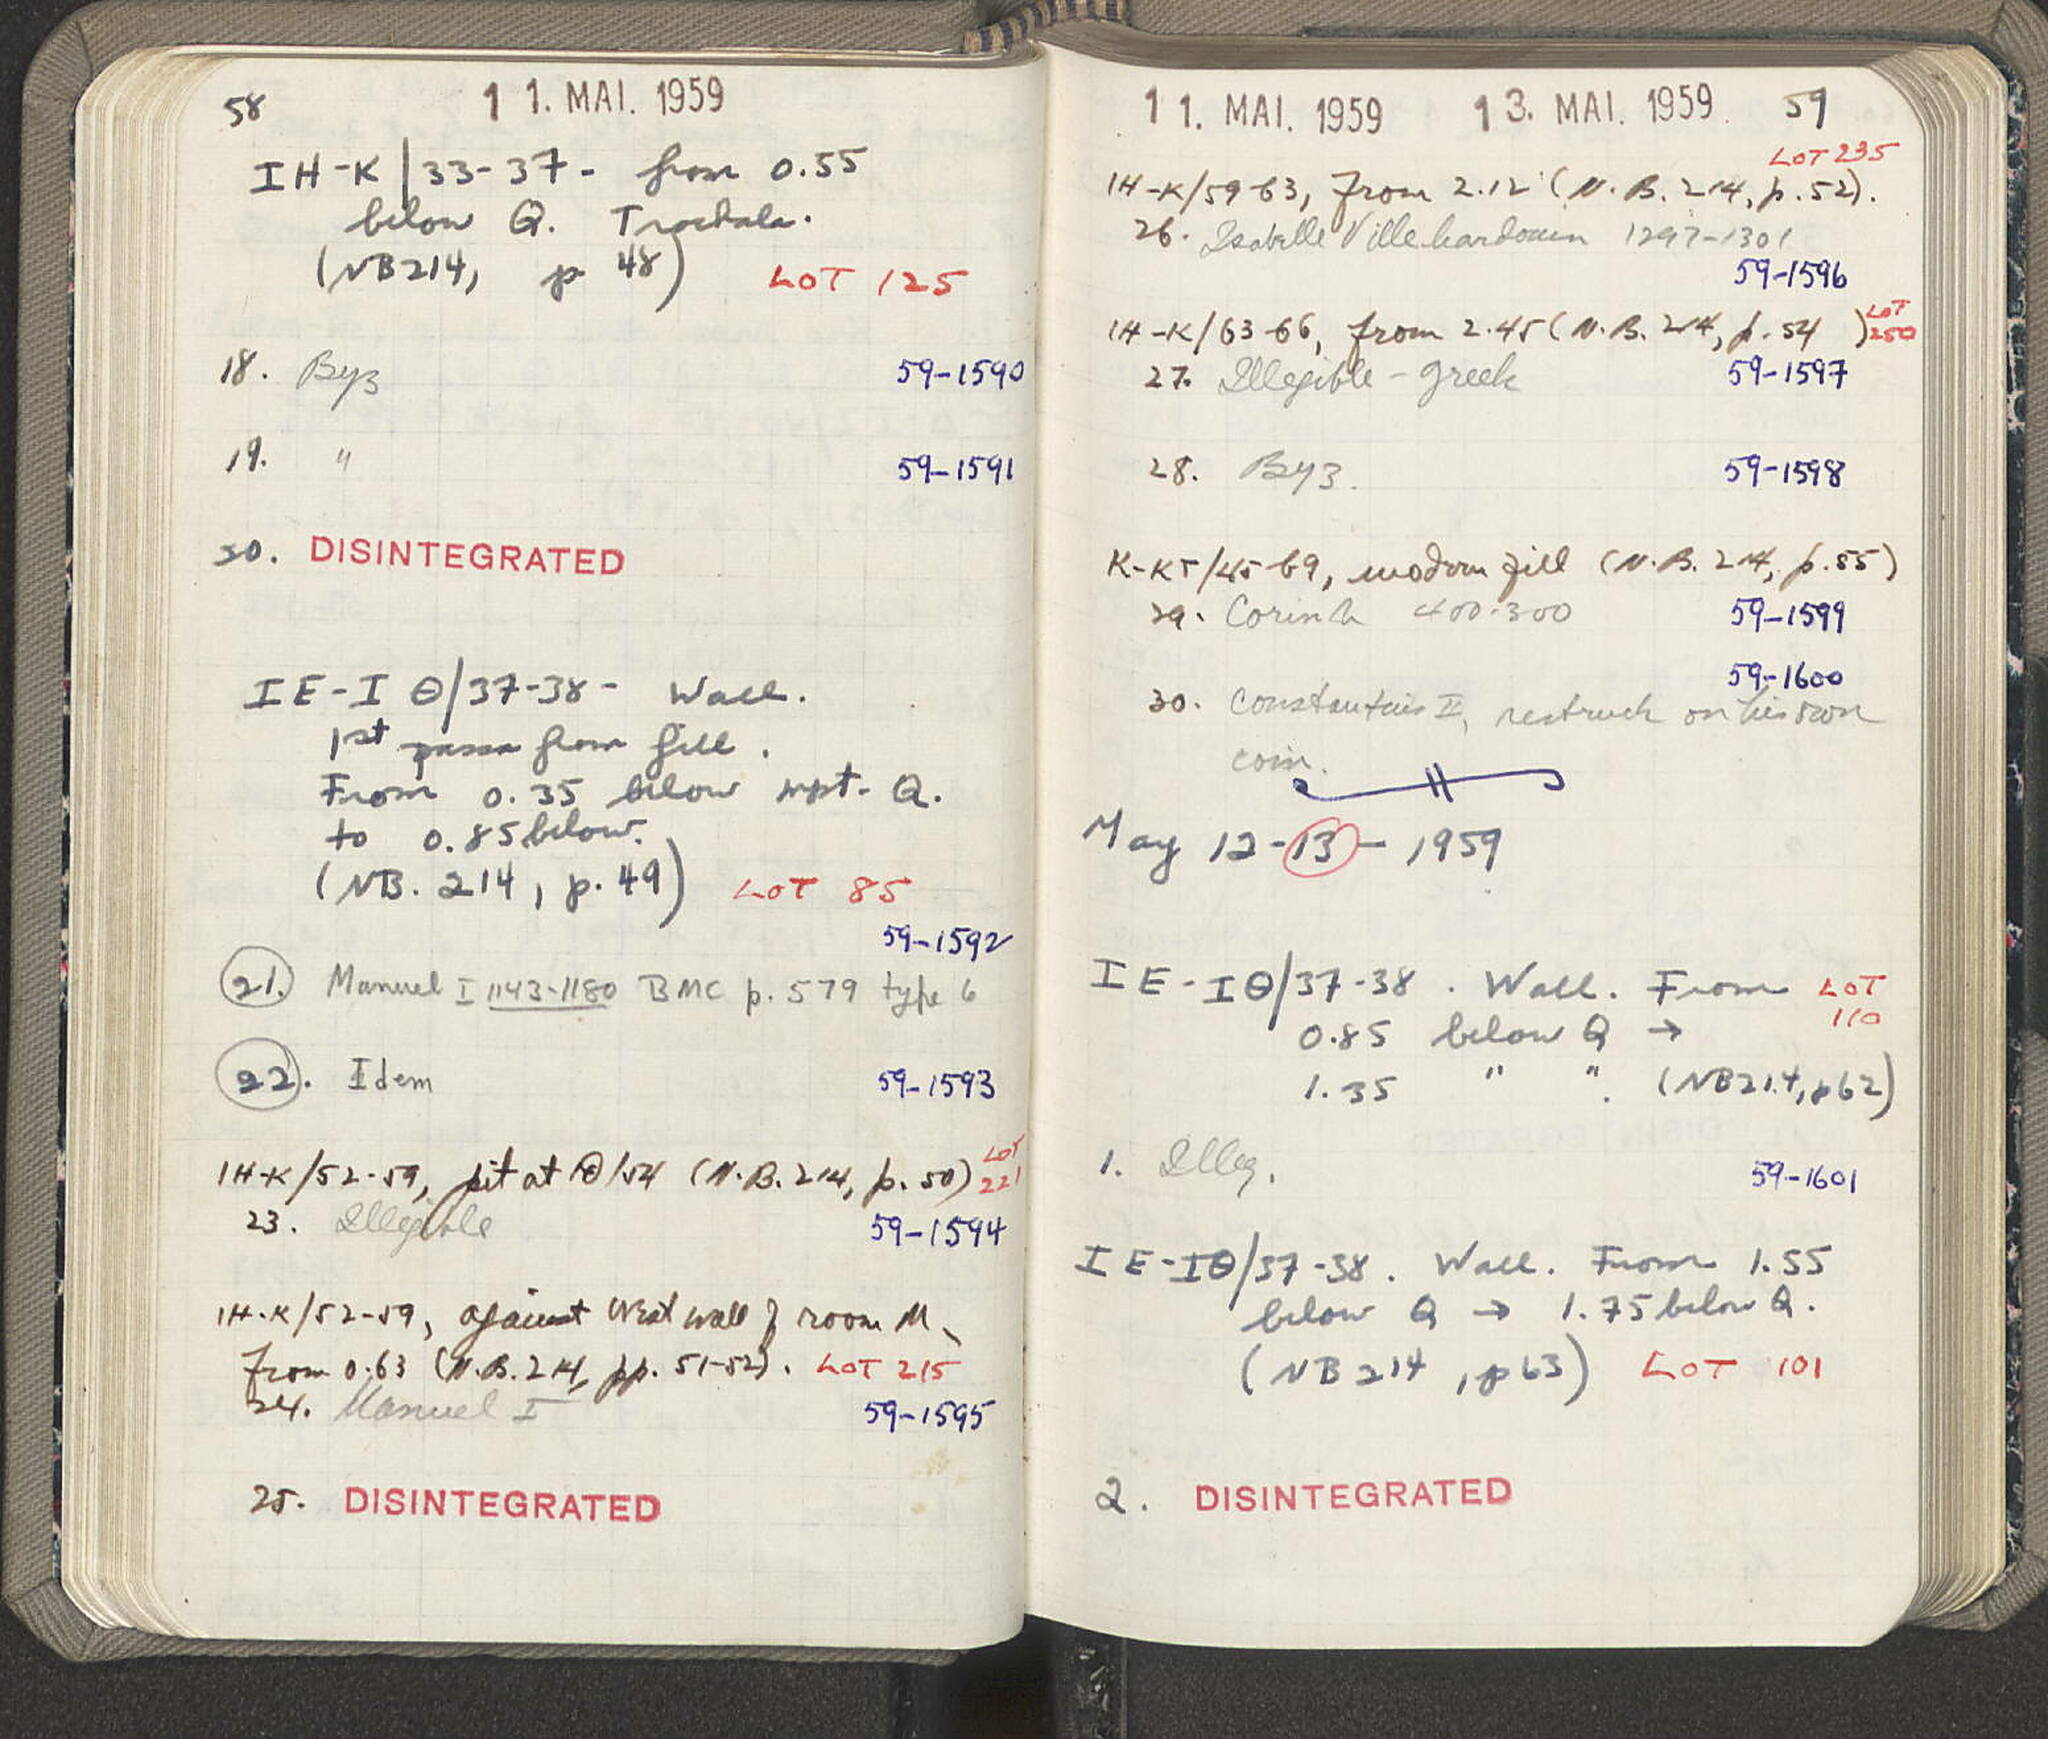 58
11. MAI. 1959
IH-K/33-37- from 0.55
below Q.
(NB214, p 48) LOT 125
18. Byz 59-1590
19. " 59-1591
20. DISINTEGRATED
IE-IΘ/37-38- Wall.
1st passa from fill.
From 0.35 below mpt. Q.
to 0.85 below.
(NB. 214, p. 49) LOT 85
59-1592
21. Manuel I 1143-1180 BMC p. 579 type 6
22. Idem 59-1593
IH-K/52-59, pit at Θ/54 (N.B. 214, p. 50) LOT 221
23. Illegible 59-1594
IH-K/52-59, against West wall of room M,
from 0.63 (N.B. 214, pp. 51-52). LOT 215
24. Manuel I 59-1595
25. DISINTEGRATED
11. MAI. 1959 13. MAI. 1959 59
LOT 235
IH-K/59-63, from 2.12 (N.B. 214, p. 52).
26. Isabelle Villehardouin 1297-1301
59-1596
IH-K/63-66, from 2.45 (N.B. 214, p. 54) LOT 250
27. Illegible - Greek 59-1597
28. Byz. 59-1598
K-KT/45-69, modern fill (N.B. 214, p. 55)
29. Corinth 400-300 59-1599
59-1600
30. Constantius II, restruck on his own
coin.
May 12-13- 1959
IE-IΘ/37-38. Wall. From LOT 110
0.85 below Q →
1.35 " ". (NB214, p62)
1. Illeg. 59-1601
IE-IΘ/37-38. Wall. From 1.55
below Q → 1.75 below Q.
(NB 214, p63) LOT 101
2. DISINTEGRATED